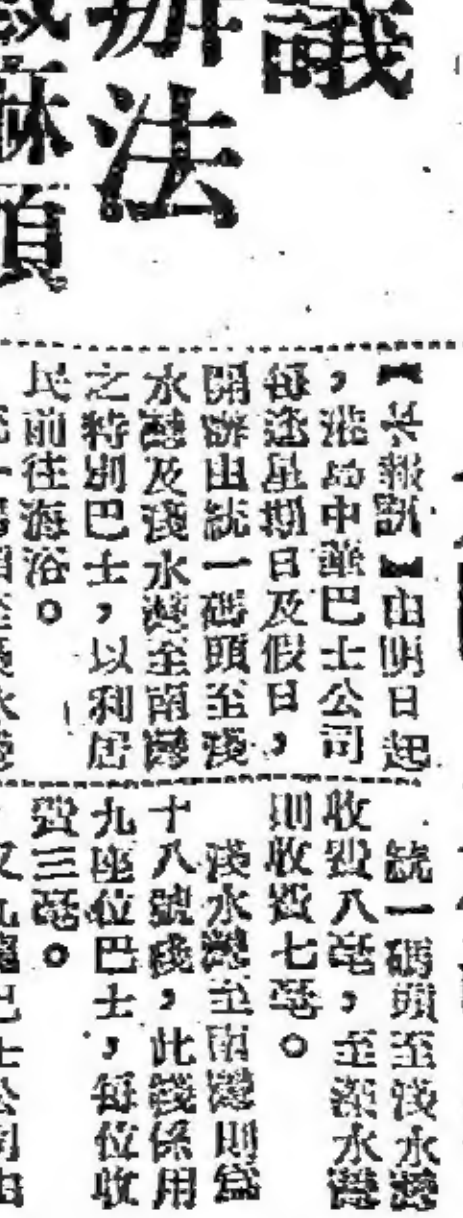 議
辦法
蔴頂
【本報訊】由明日起
，港島中華巴士公司
每逢星期日及假日，
開辦由統一碼頭至淺
水灣及淺水灣至南灣
之特別巴士，以利居
民前往海浴。
統一碼頭至淺水灣
收費八毫，至深水灣
則收費七毫。
淺水灣至南灣則為
十八號綫，此綫係用
九座位巴士，每位收
費三毫。
又九龍巴士公司由